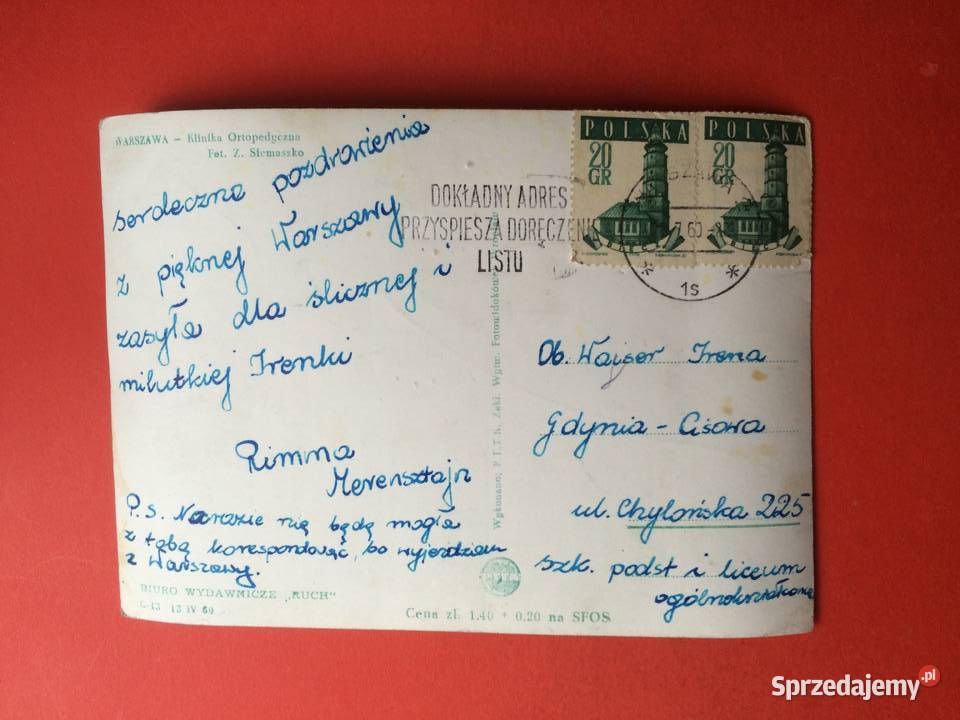 WARSZAWA – Klinika Ortopedyczna
Fot. Z. Siemaszko
serdeczne pozdrowienia
z pięknej Warszawy
zasyła dla ślicznej i
milutkiej Irenki
Rimma
Merensztajn
P.s. Narazie nię będę mogła
z tobą korespondować, bo wyjeżdżam
z Warszawy.
BIURO WYDAWNICZE „RUCH"
C-13 13 IV 60
Cena zł. 1.40 + 0.20 na SFOS
Wykonano: P.T.T.K. Zakł. Wytw.
DOKŁADNY ADRES
PRZYSPIESZA DORĘCZENIE
LISTU
POLSKA
20
GR
POLSKA
20
GR
7.60
1s
Ob. Wajser Irena
Gdynia – Cisowa
ul. Chylońska 225
szk. podst i liceum
ogólnokształcące
Sprzedajemy.pl